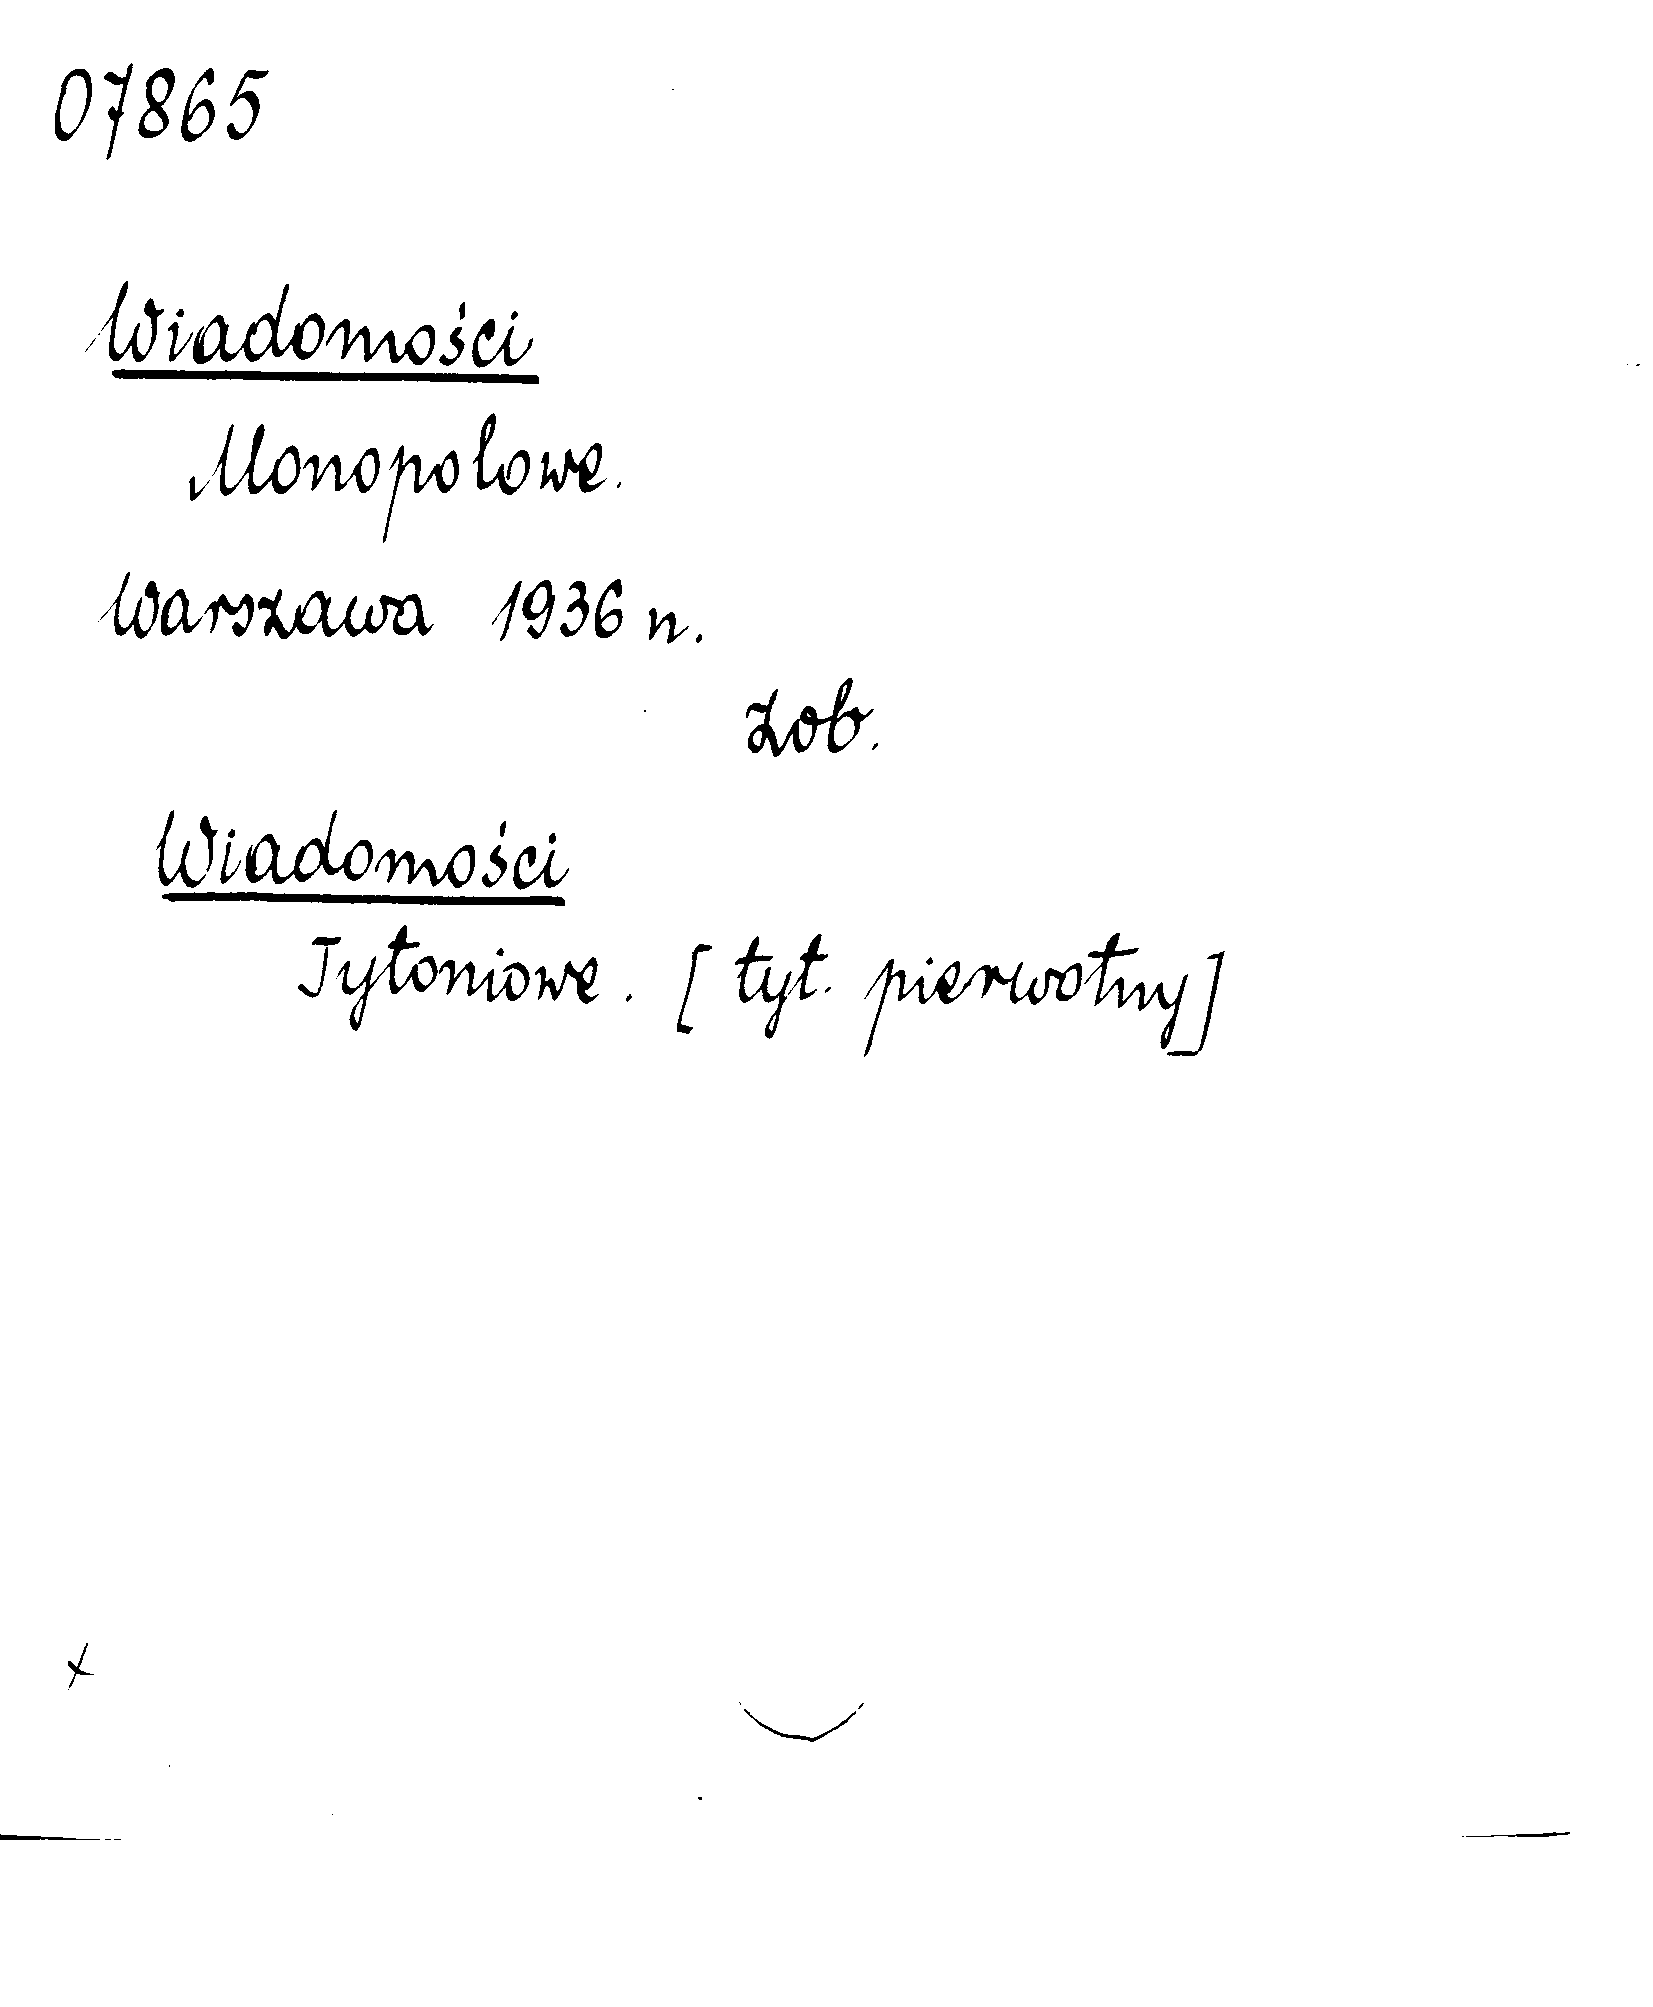 07865
Wiadomości
Monopolowe.
Warszawa 1936 n.
Zob.
Wiadomości
Tytoniowe. [tyt. pierwotny]
x